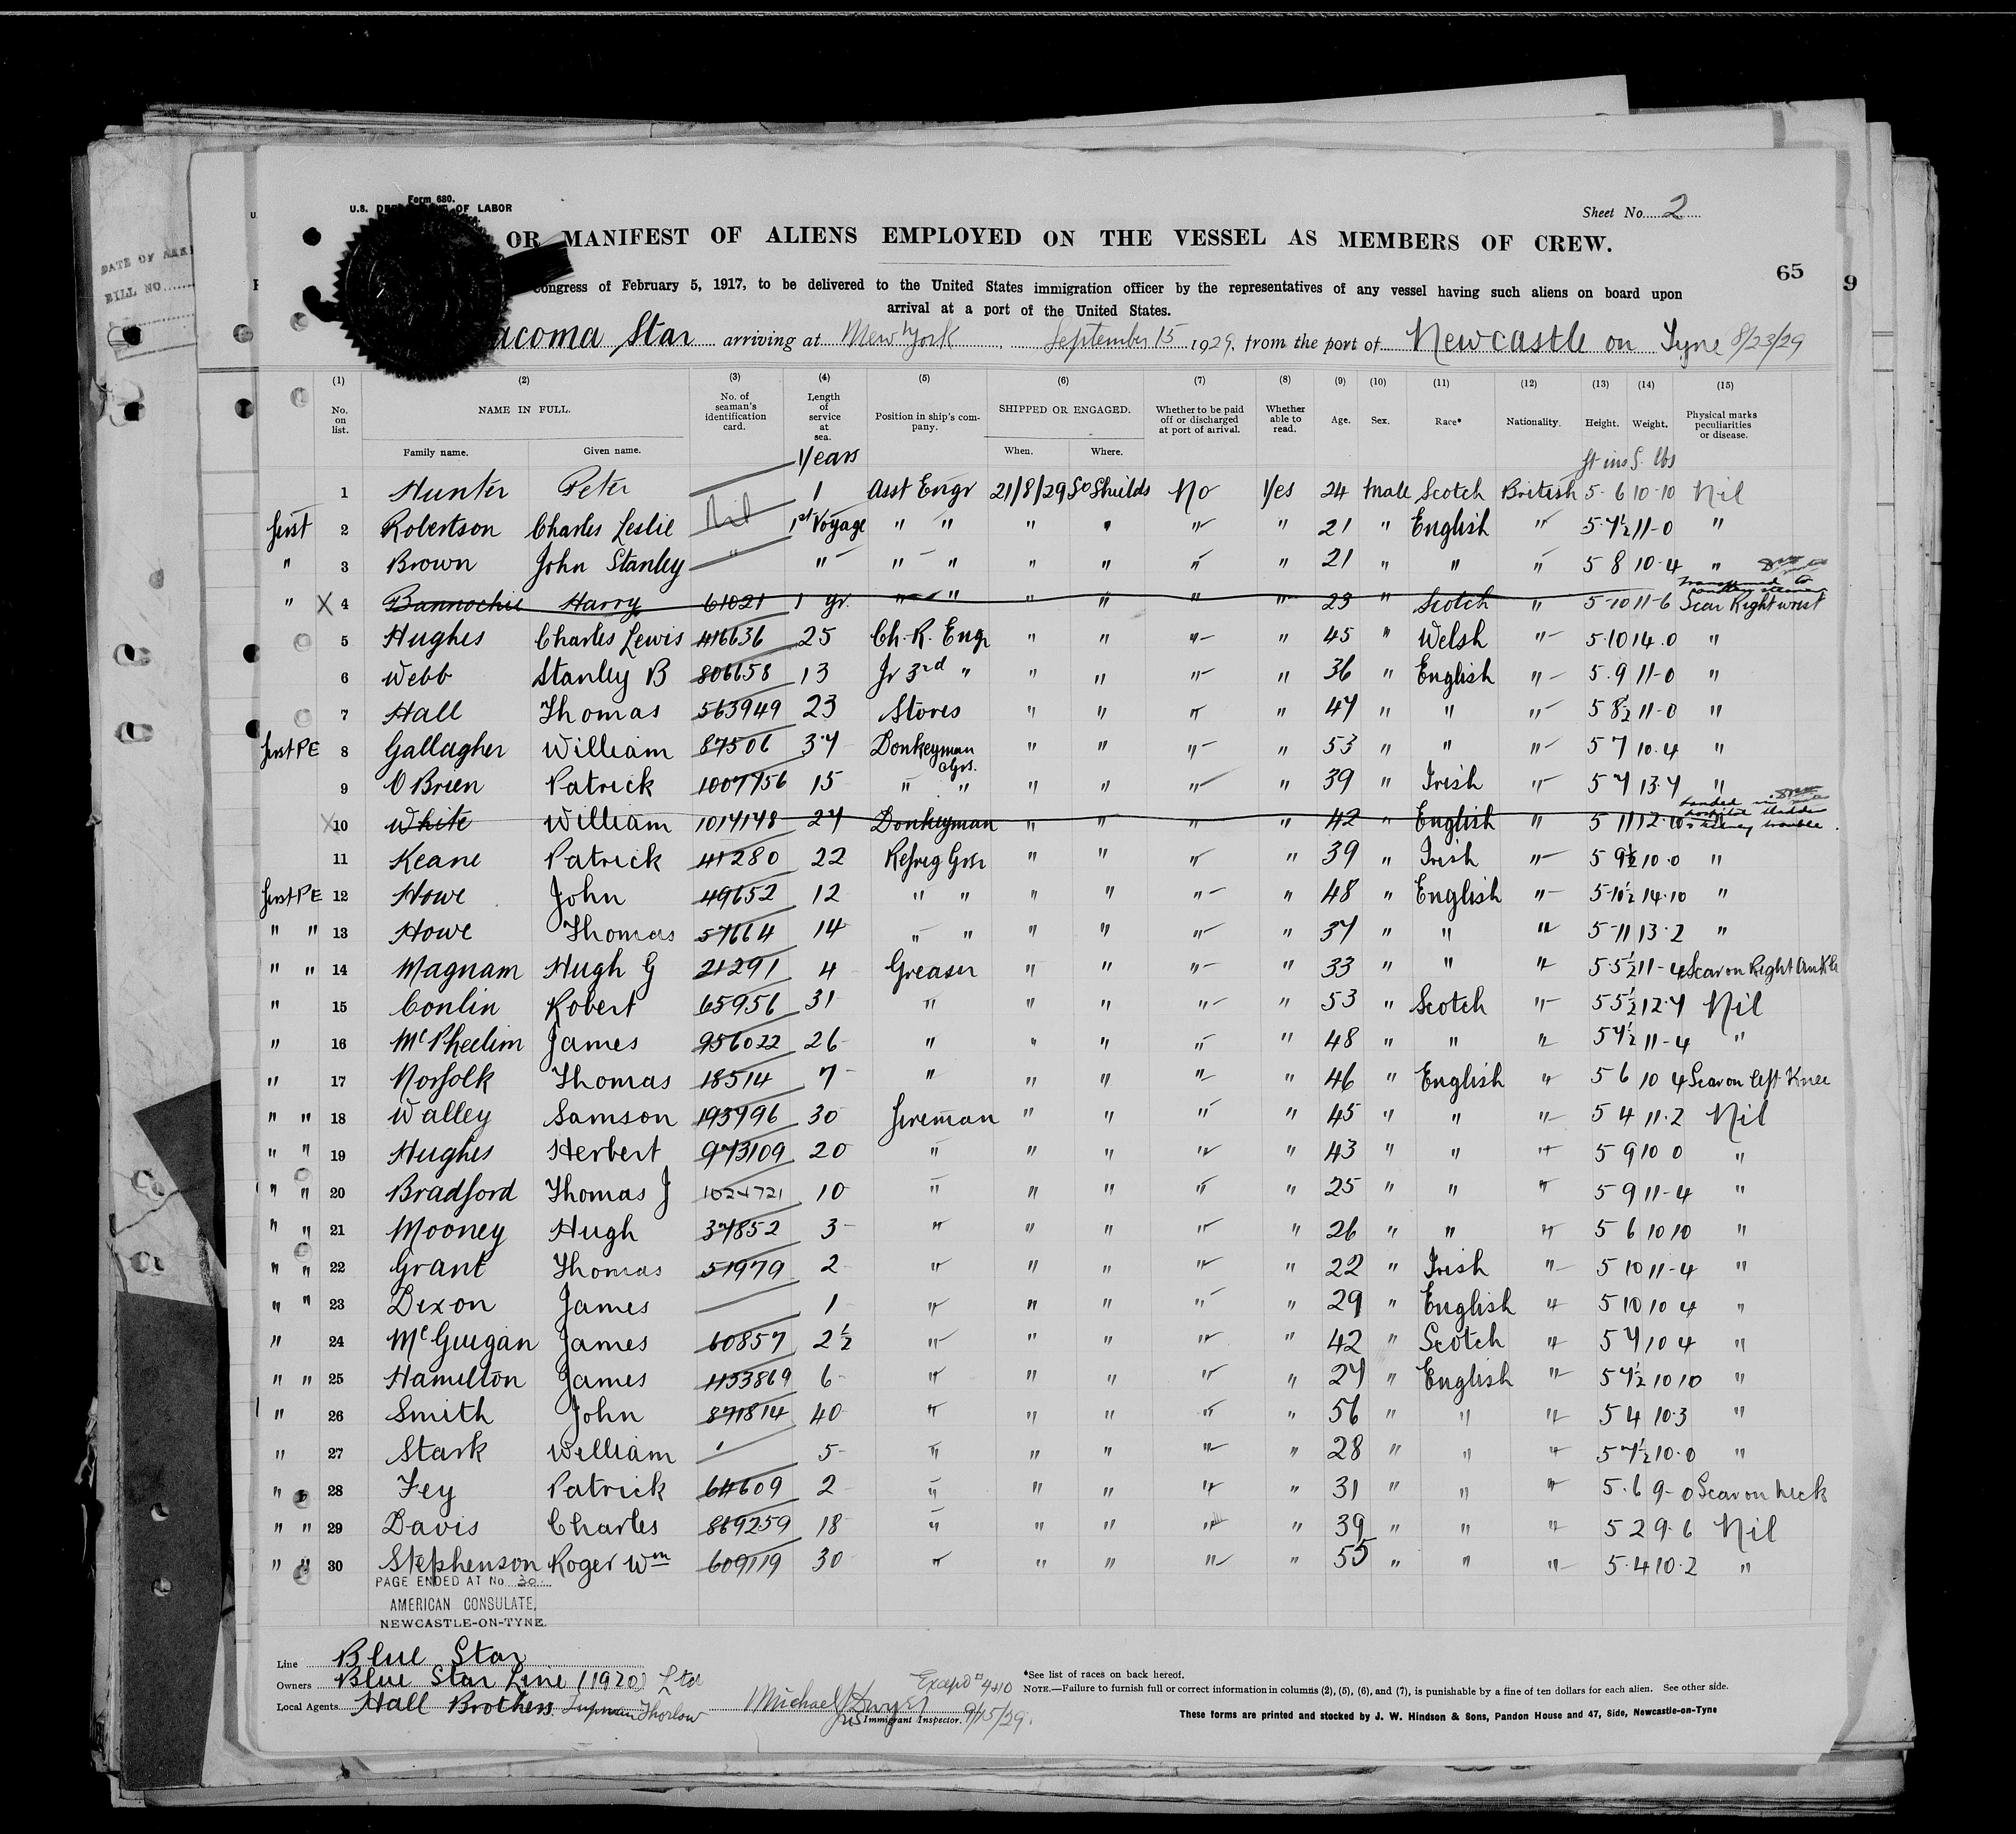 Form 680.
U.S. DEPARTMENT OF LABOR
Sheet No. 2
OR MANIFEST OF ALIENS EMPLOYED ON THE VESSEL AS MEMBERS OF CREW.
65
9
DATE OF
BILL NO
Congress of February 5, 1917, to be delivered to the United States immigration officer by the representatives of any vessel having such aliens on board upon
arrival at a port of the United States.
acoma Star arriving at New York September 15 1929, from the port of Newcastle on Tyne 8/23/29
(1) (2) (3) (4) (5) (6) (7) (8) (9) (10) (11) (12) (13) (14) (15)
No. on list. NAME IN FULL. No. of seaman's identification card. Length of service at sea. Position in ship's company. SHIPPED OR ENGAGED. Whether to be paid off or discharged at port of arrival. Whether able to read. Age. Sex. Race* Nationality. Height. Weight. Physical marks peculiarities or disease.
Family name. Given name. When. Where.
Years ft ins S. lbs
1 Hunter Peter 1 Asst Engr 21/8/29 So Shields No Yes 24 Male Scotch British 5-6 10-10 Nil
first 2 Robertson Charles Leslie Nil 1st Voyage " " " " " " 21 " English " 5-7½ 11-0 "
" 3 Brown John Stanley " " " " " " " " 21 " " " 5 8 10-4 "
" X 4 Bannochie Harry 61021 1 yr. " " " " " " 23 " Scotch " 5-10 11-6 Scar Right wrist
5 Hughes Charles Lewis 416636 25 Ch. R. Engr " " " " 45 " Welsh " 5-10 14.0 "
6 Webb Stanley B 806658 13 Jr 3rd " " " " " 36 " English " 5.9 11-0 "
7 Hall Thomas 563949 23 Stores " " " " 47 " " " 5 8½ 11-0 "
first PE 8 Gallagher William 87506 37 Donkeyman " " " " 53 " " " 5 7 10.4 "
9 O Brien Patrick 1007756 15 " " " " " " 39 " Irish " 5 7 13.7 "
X 10 White William 1014148 27 Donkeyman " " " " 42 " English " 5 11 12.10 Landed in hospital bladder & kidney trouble
11 Keane Patrick 41280 22 Refrig Grsr " " " " 39 " Irish " 5 9½ 10.0 "
first PE 12 Howe John 49652 12 " " " " " " 48 " English " 5-10½ 14.10 "
" " 13 Howe Thomas 57664 14 " " " " " " 37 " " " 5-11 13.2 "
" " 14 Magnam Hugh G 21291 4 Greaser " " " " 33 " " " 5.5½ 11-4 Scar on Right Ankle
" 15 Conlin Robert 65956 31 " " " " " 53 " Scotch " 5 5½ 12.7 Nil
" 16 McPheelim James 956022 26 " " " " " 48 " " " 5 7½ 11-4 "
" 17 Norfolk Thomas 18514 7 " " " " " 46 " English " 5 6 10 4 Scar on left Knee
" " 18 Walley Samson 193996 30 Fireman " " " " 45 " " " 5 4 11.2 Nil
" " 19 Hughes Herbert 973109 20 " " " " " 43 " " " 5 9 10 0 "
" " 20 Bradford Thomas J 1024721 10 " " " " " 25 " " " 5 9 11-4 "
" " 21 Mooney Hugh 37852 3 " " " " " 26 " " " 5 6 10 10 "
" " 22 Grant Thomas 51979 2 " " " " " 22 " Irish " 5 10 11-4 "
" " 23 Dixon James 1 " " " " " 29 " English " 5 10 10 4 "
" 24 McGuigan James 60857 2½ " " " " " 42 " Scotch " 5 7 10 4 "
" " 25 Hamilton James 1133869 6 " " " " " 27 " English " 5 7½ 10 10 "
" 26 Smith John 871814 40 " " " " " 56 " " " 5 4 10.3 "
" 27 Stark William 5 " " " " " 28 " " " 5 7½ 10.0 "
" 28 Fey Patrick 64609 2 " " " " " 31 " " " 5.6 9-0 Scar on neck
" " 29 Davis Charles 869259 18 " " " " " 39 " " " 5 2 9.6 Nil
" " 30 Stephenson Roger Wm 609119 30 " " " " " 55 " " " 5.4 10.2 "
PAGE ENDED AT No 30
AMERICAN CONSULATE,
NEWCASTLE-ON-TYNE.
Line Blue Star
Owners Blue Star Line (1920) Ltd
Local Agents Hall Brothers
Immigrant Inspector. 9/15/29
*See list of races on back hereof.
NOTE.—Failure to furnish full or correct information in columns (2), (5), (6), and (7), is punishable by a fine of ten dollars for each alien. See other side.
These forms are printed and stocked by J. W. Hindson & Sons, Pandon House and 47, Side, Newcastle-on-Tyne